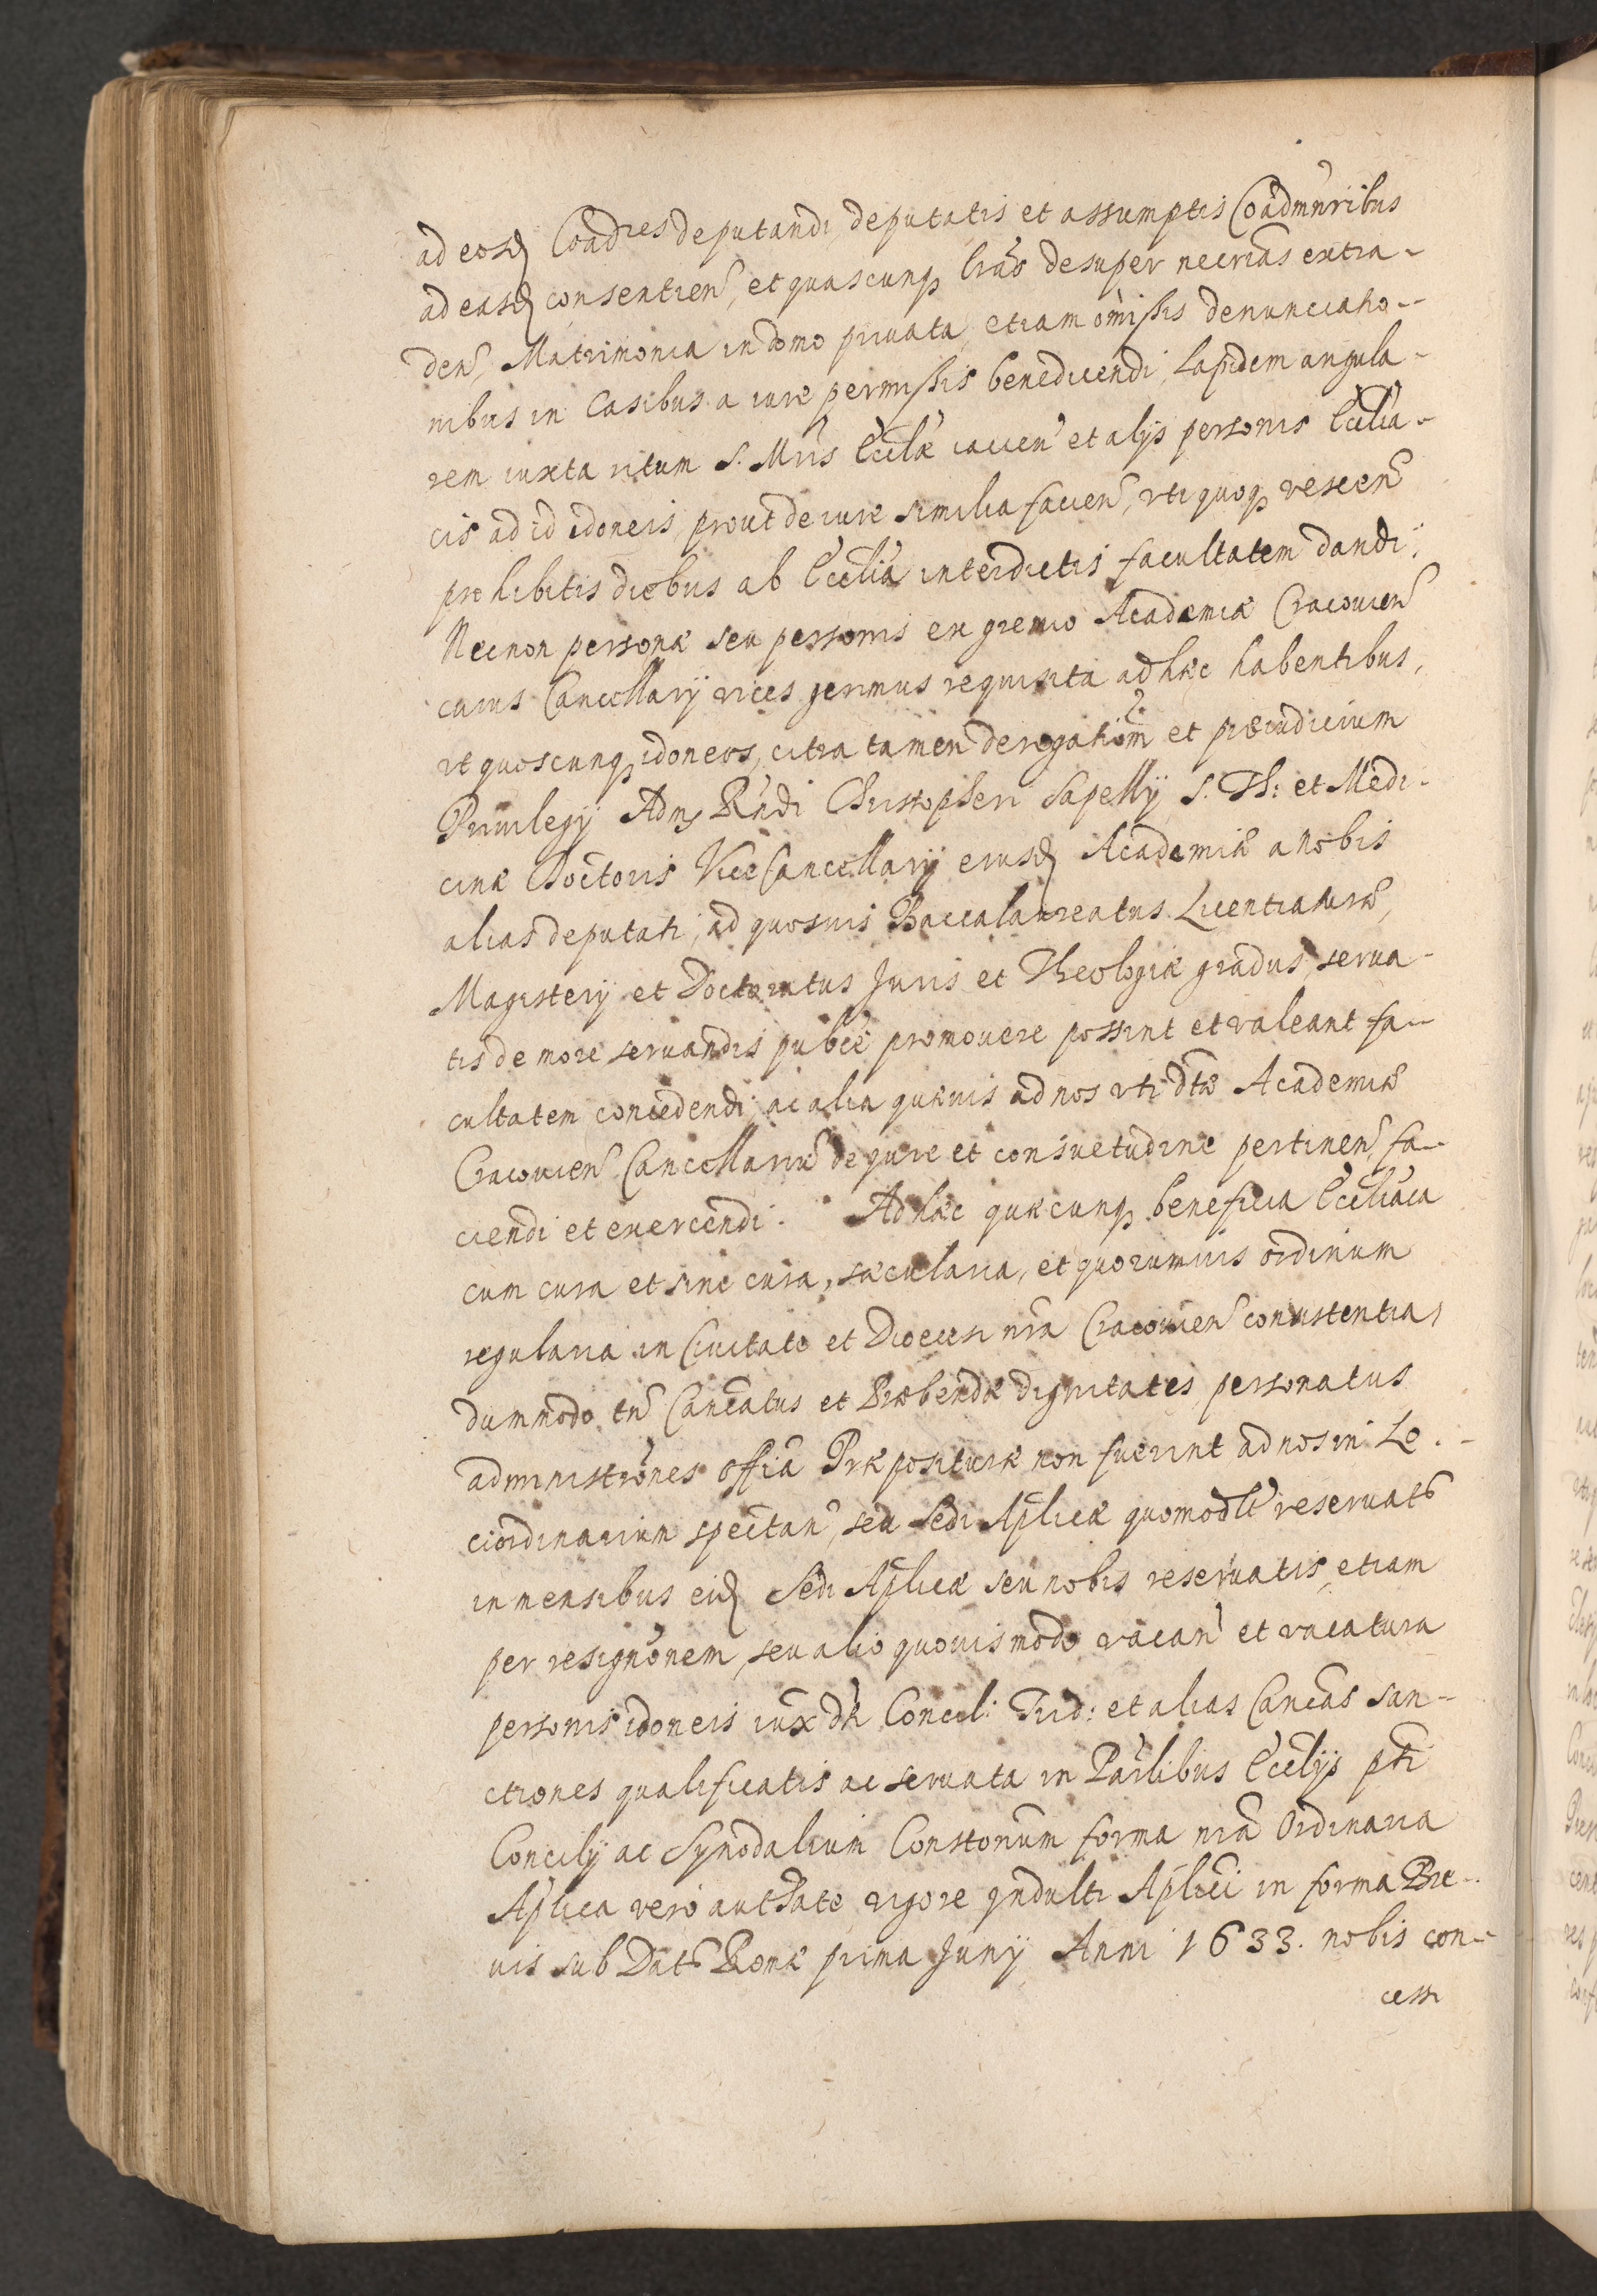 ad eosd Coadres deputandi, deputatis et assumptis Coadmnribus
ad easd consentien, et quascunq lras desuper necrias extra-
den, Matrimonia in domo priuata, etiam omissis denunciatio-
nibus in Casibus a iure permissis benedicendi, Lapidem angula-
rem iuxta ritum S. Mris Ecclæ iacien et alijs personis Eccliã-
cis ad id idoneis, prout de iure similia facien, vti quoq vescen
prohibitis diebus ab Ecclia interdictis facultatem dandi:
Necnon personæ seu personis ex gremio Academiæ Cracouien
cuius Cancellarij vices gerimus requisita ad hæc habentibus,
vt quoscunq idoneos, citra tamen derogatiom et præiudicium
Priuilegij Adm Rndi Christopheri Sapellij S. Th: et Medi-
cinæ Doctoris ViceCancellarij eiusd Academiæ a Nobis
alias deputati, ad quosuis Baccalaureatus Licentiaturæ,
Magisterij et Doctoratus Juris et Theologiæ gradus, serua-
tis de more seruandis publce promouere possint et valeant fa-
cultatem concedendi, ac alia quæuis ad nos vti dtæ Academiæ
Cracouien Cancellariu de jure et consuetudine pertinen, fa-
ciendi et exercendi. Ad hæc quæcunq beneficia Eccliaca
cum cura et sine cura, sæcularia, et quorumuis ordinum
regularia in Ciuitate et Dioecesi nra Cracouien consistentia,
dummodo tn Cancatus et Præbendæ dignitates personatus
administrones offia Præposituræ non fuerint ad nos in Lo-
ciordinarium spectan, seu Sedi Aplicæ quomodlt reseruata
in mensibus eid Sedi Aplicæ seu nobis reseruatis, etiam
per resignonem, seu alio quouis modo vacan et vacatura
personis idoneis iux dti Concil: Trid: et alias Cancas san-
ctiones qualificatis ac seruata in Parlibus Ecclijs pti
Concilij ac Synodalium Constonum forma nra Ordinaria
Aplica vero authate vigore Indulti Aplici in forma Bre-
uis sub Data Romæ prima Junij Anni 1633. nobis con-
cessi